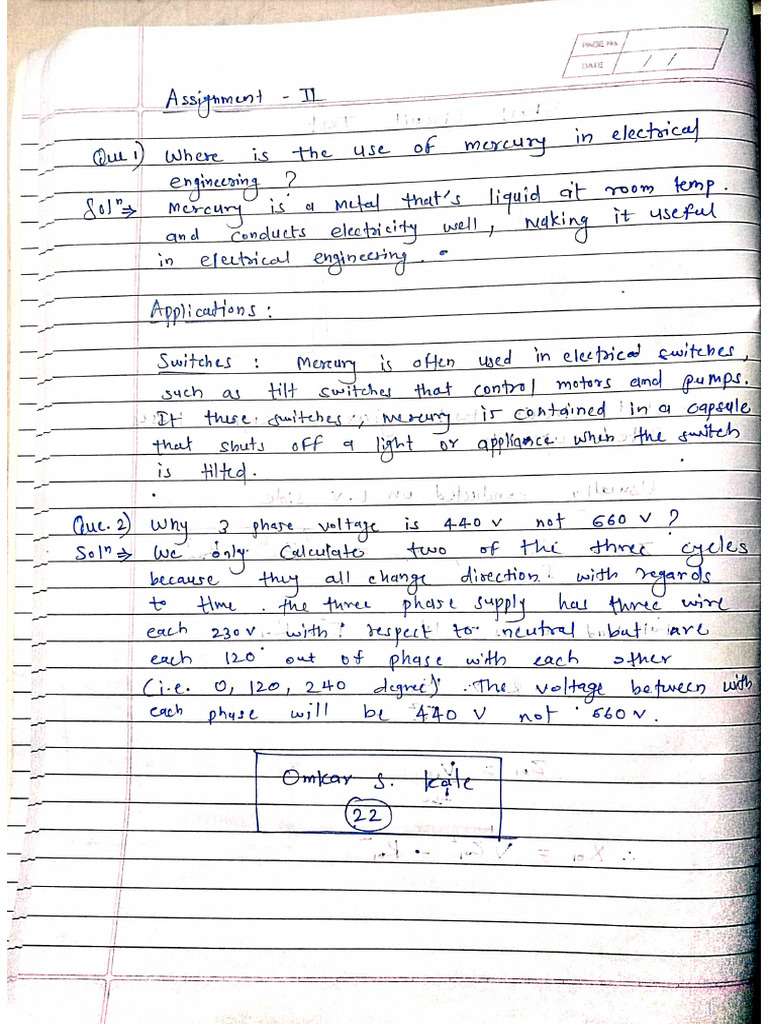 PAGE No.
DATE / /
Assignment - II
Que 1) Where is the use of mercury in electrical
engineering ?
Solⁿ⇒ Mercury is a metal that's liquid at room temp.
and conducts electricity well, making it useful
in electrical engineering.
Applications :
Switches : Mercury is often used in electrical switches,
such as tilt switches that control motors and pumps.
It these switches, mercury is contained in a capsule
that shuts off a light or appliance when the switch
is tilted.
Que. 2) Why 3 phase voltage is 440 V not 660 V ?
Solⁿ⇒ We only calculate two of the three cycles
because they all change direction with regards
to time. The three phase supply has three wire
each 230v with respect to neutral but are
each 120° out of phase with each other
(i.e. 0, 120, 240 degree). The voltage between with
each phase will be 440 V not 660 v.
Omkar S. Kale
22